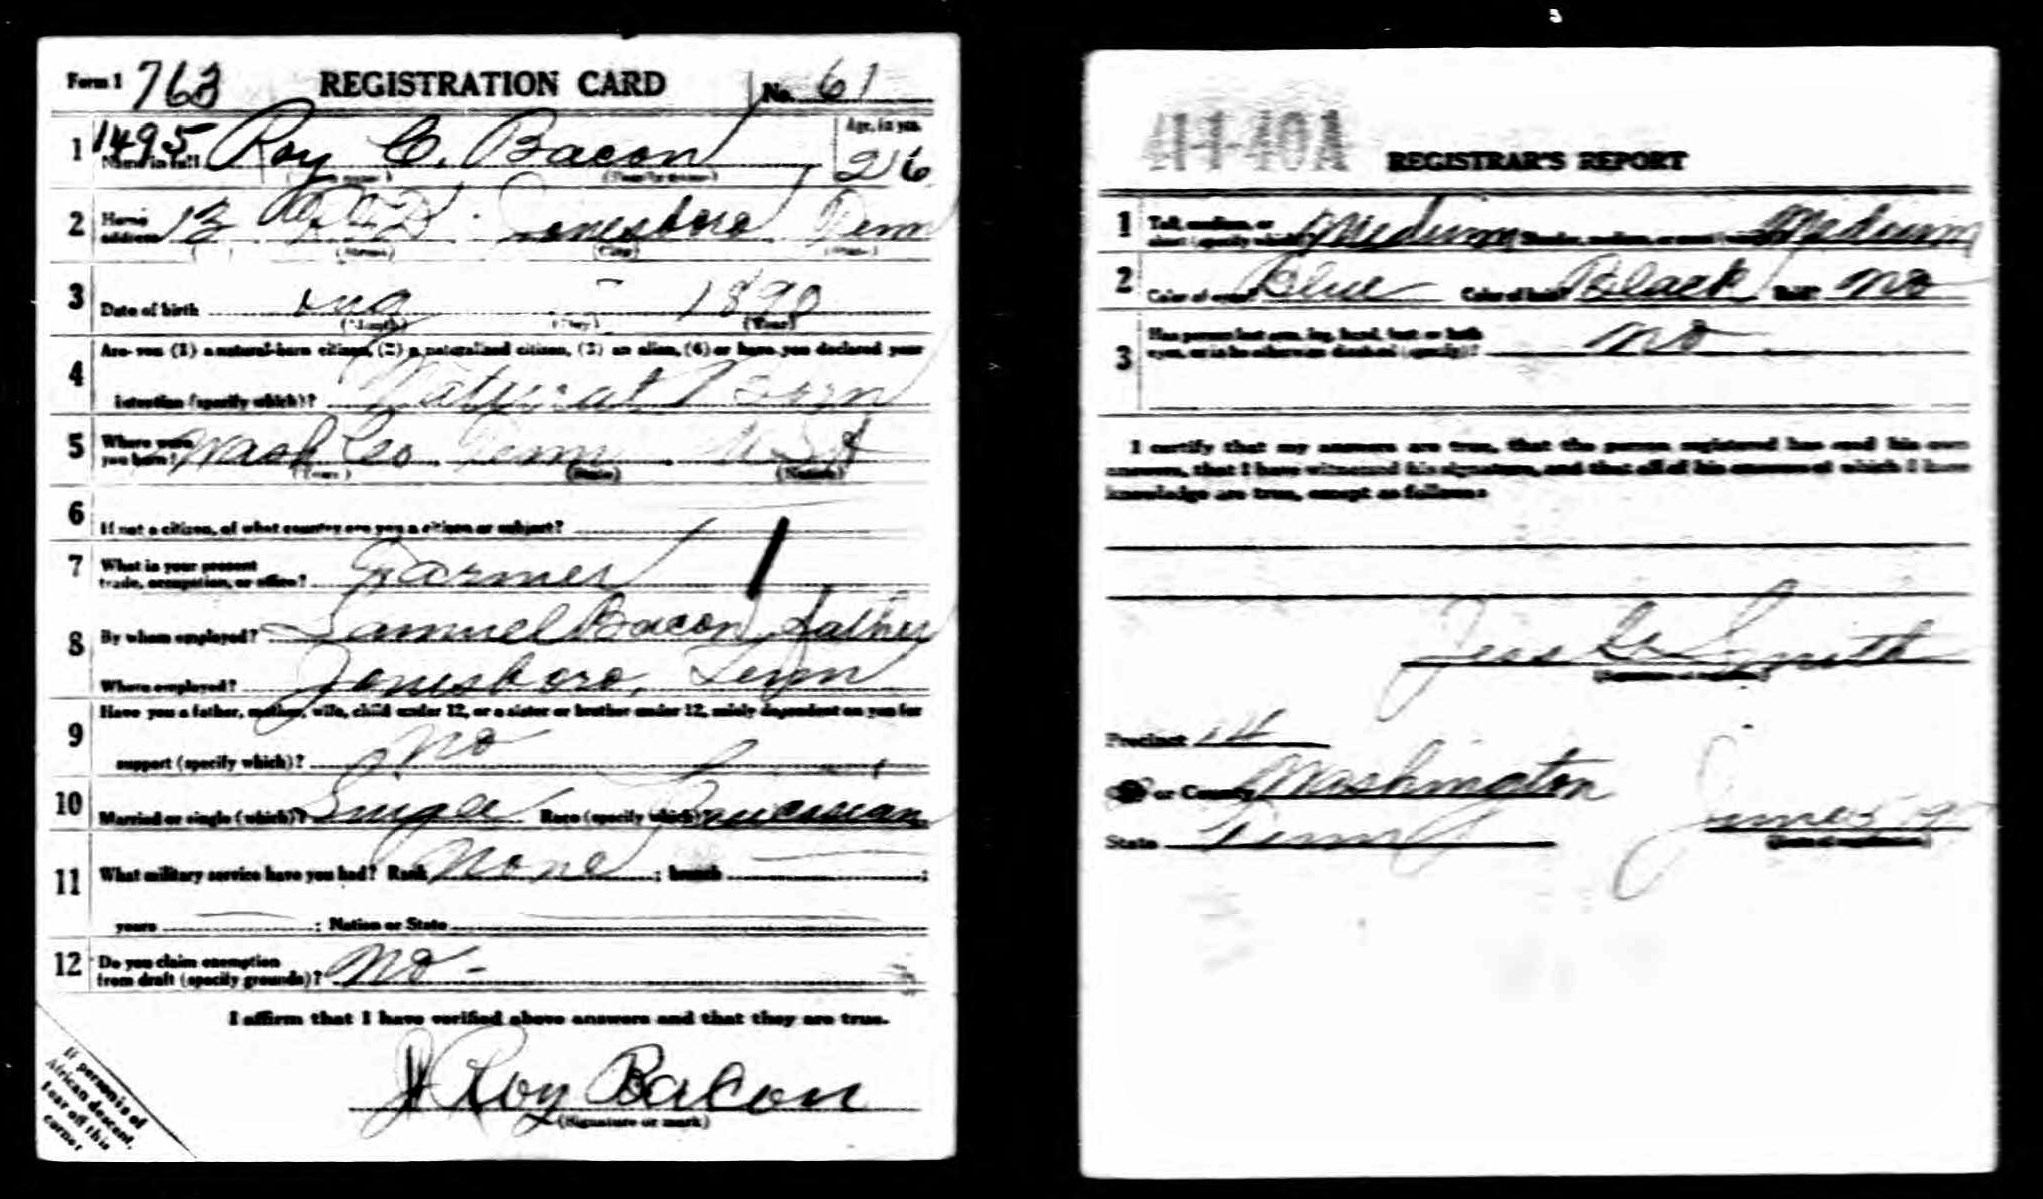 Form 1 763 REGISTRATION CARD No. 61
1 1495 Name in full Roy C. Bacon Age, in yrs. 26
(Family name)
2 Home address 13 R.F.D. Jonesboro Tenn
(Street) (City) (State)
3 Date of birth Aug - 1890
(Month) (Day) (Year)
4 Are you (1) a natural-born citizen, (2) a naturalized citizen, (3) an alien, (4) or have you declared your
intention (specify which)? Natural Born
5 Where were you born? Wash Co Tenn U S A
(Town) (State) (Nation)
6 If not a citizen, of what country are you a citizen or subject?
7 What is your present trade, occupation, or office? Farmer
8 By whom employed? Samuel Bacon, father
Where employed? Jonesboro, Tenn
9 Have you a father, mother, wife, child under 12, or a sister or brother under 12, solely dependent on you for
support (specify which)? No
10 Married or single (which)? Single Race (specify which)? Caucasian
11 What military service have you had? Rank None ; branch ;
years ; Nation or State
12 Do you claim exemption from draft (specify grounds)? No -
I affirm that I have verified above answers and that they are true.
Roy Bacon
(Signature or mark)
If person is of
African descent,
tear off this
corner
41-4-40A REGISTRAR'S REPORT
1 Tall, medium, or short (specify which)? Medium Slender, medium, or stout (which)? Medium
2 Color of eyes? Blue Color of hair? Black Bald? No
3 Has person lost arm, leg, hand, foot, or both eyes, or is he otherwise disabled (specify)? No
I certify that my answers are true, that the person registered has read his own
answers, that I have witnessed his signature, and that all of his answers of which I have
knowledge are true, except as follows:
Smith
(Signature of registrar)
Precinct 14
or County Washington
State Tenn June 5 19
(Date of registration)